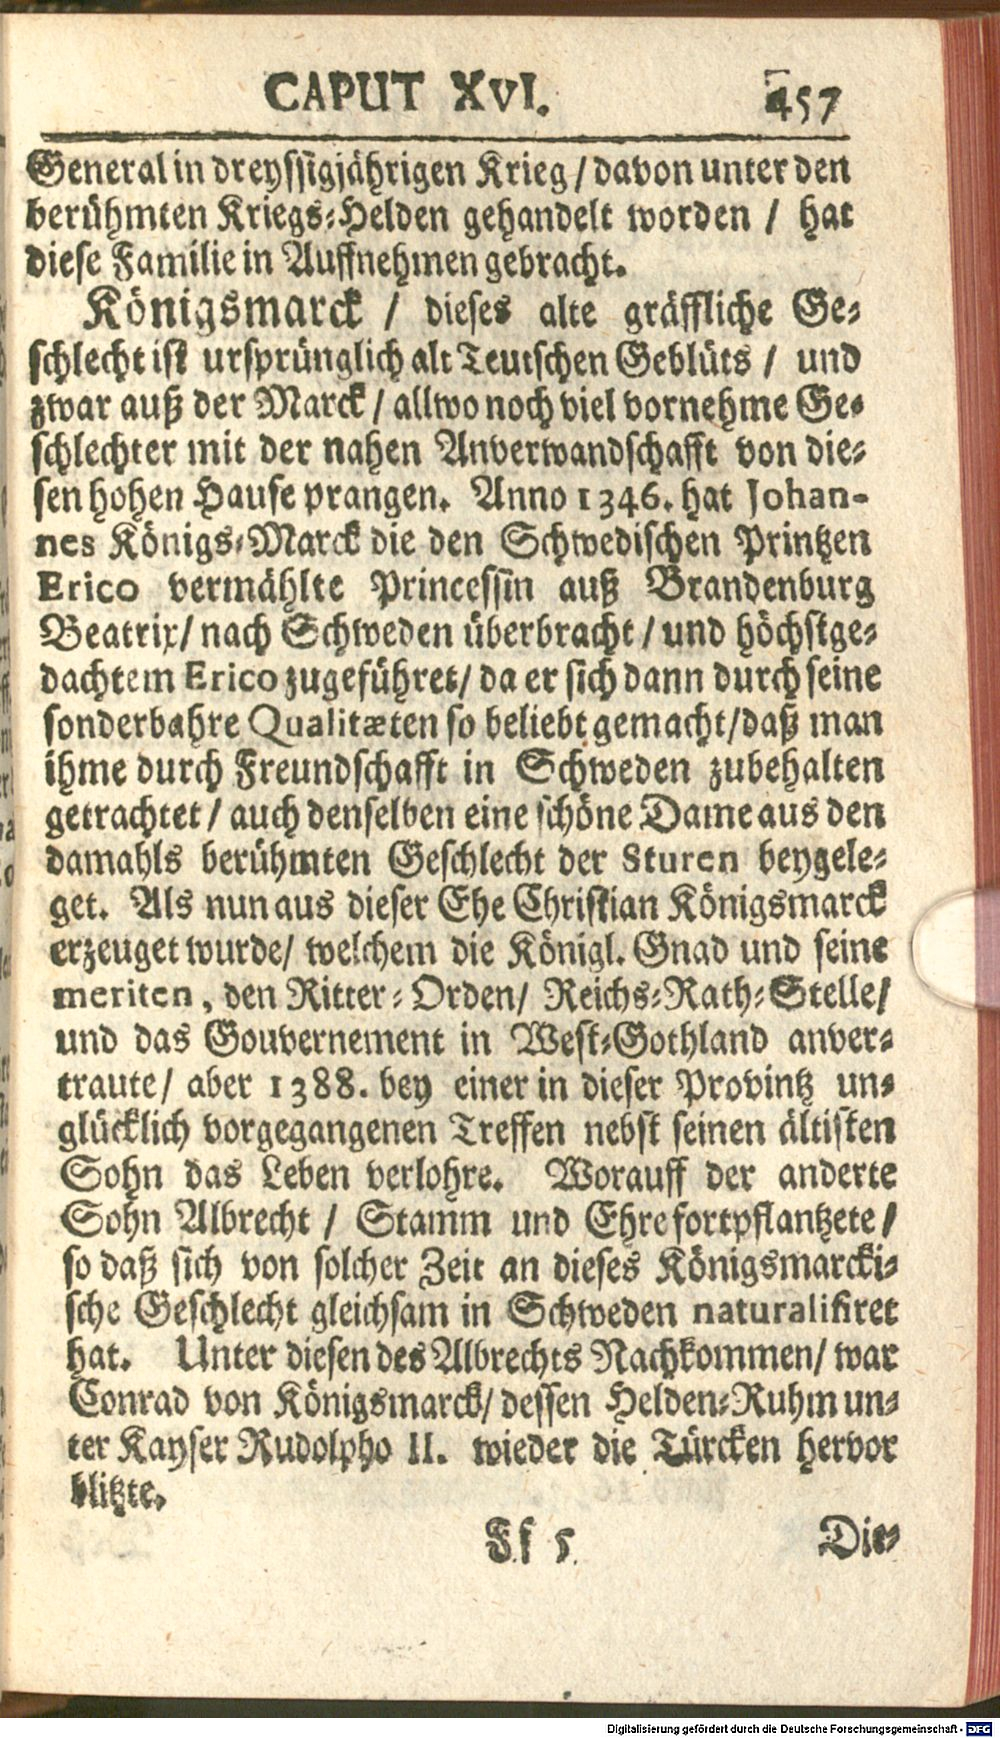 CAPUT XVI. 457
General in dreyssigjährigen Krieg / davon unter den
berühmten Kriegs-Helden gehandelt worden / hat
diese Familie in Auffnehmen gebracht.
Königsmarck / dieses alte gräffliche Ge-
schlecht ist ursprünglich alt Teutschen Geblüts / und
zwar auß der Marck / allwo noch viel vornehme Ge-
schlechter mit der nahen Anverwandschafft von die-
sen hohen Hause prangen. Anno 1346. hat Johan-
nes Königs-Marck die den Schwedischen Printzen
Erico vermählte Princessin auß Brandenburg
Beatrix / nach Schweden überbracht / und höchstge-
dachtem Erico zugeführet / da er sich dann durch seine
sonderbahre Qualitæten so beliebt gemacht / daß man
ihme durch Freundschafft in Schweden zubehalten
getrachtet / auch denselben eine schöne Dame aus den
damahls berühmten Geschlecht der Sturen beygele-
get. Als nun aus dieser Ehe Christian Königsmarck
erzeuget wurde / welchem die Königl. Gnad und seine
meriten, den Ritter-Orden / Reichs-Rath-Stelle /
und das Gouvernement in West-Gothland anver-
traute / aber 1388. bey einer in dieser Provintz un-
glücklich vorgegangenen Treffen nebst seinen ältisten
Sohn das Leben verlohre. Worauff der anderte
Sohn Albrecht / Stamm und Ehre fortpflantzete /
so daß sich von solcher Zeit an dieses Königsmarcki-
sche Geschlecht gleichsam in Schweden naturalisiret
hat. Unter diesen des Albrechts Nachkommen / war
Conrad von Königsmarck / dessen Helden-Ruhm un-
ter Kayser Rudolpho II. wieder die Türcken hervor
blitzte.
Ff 5 Die-
Digitalisierung gefördert durch die Deutsche Forschungsgemeinschaft - DFG